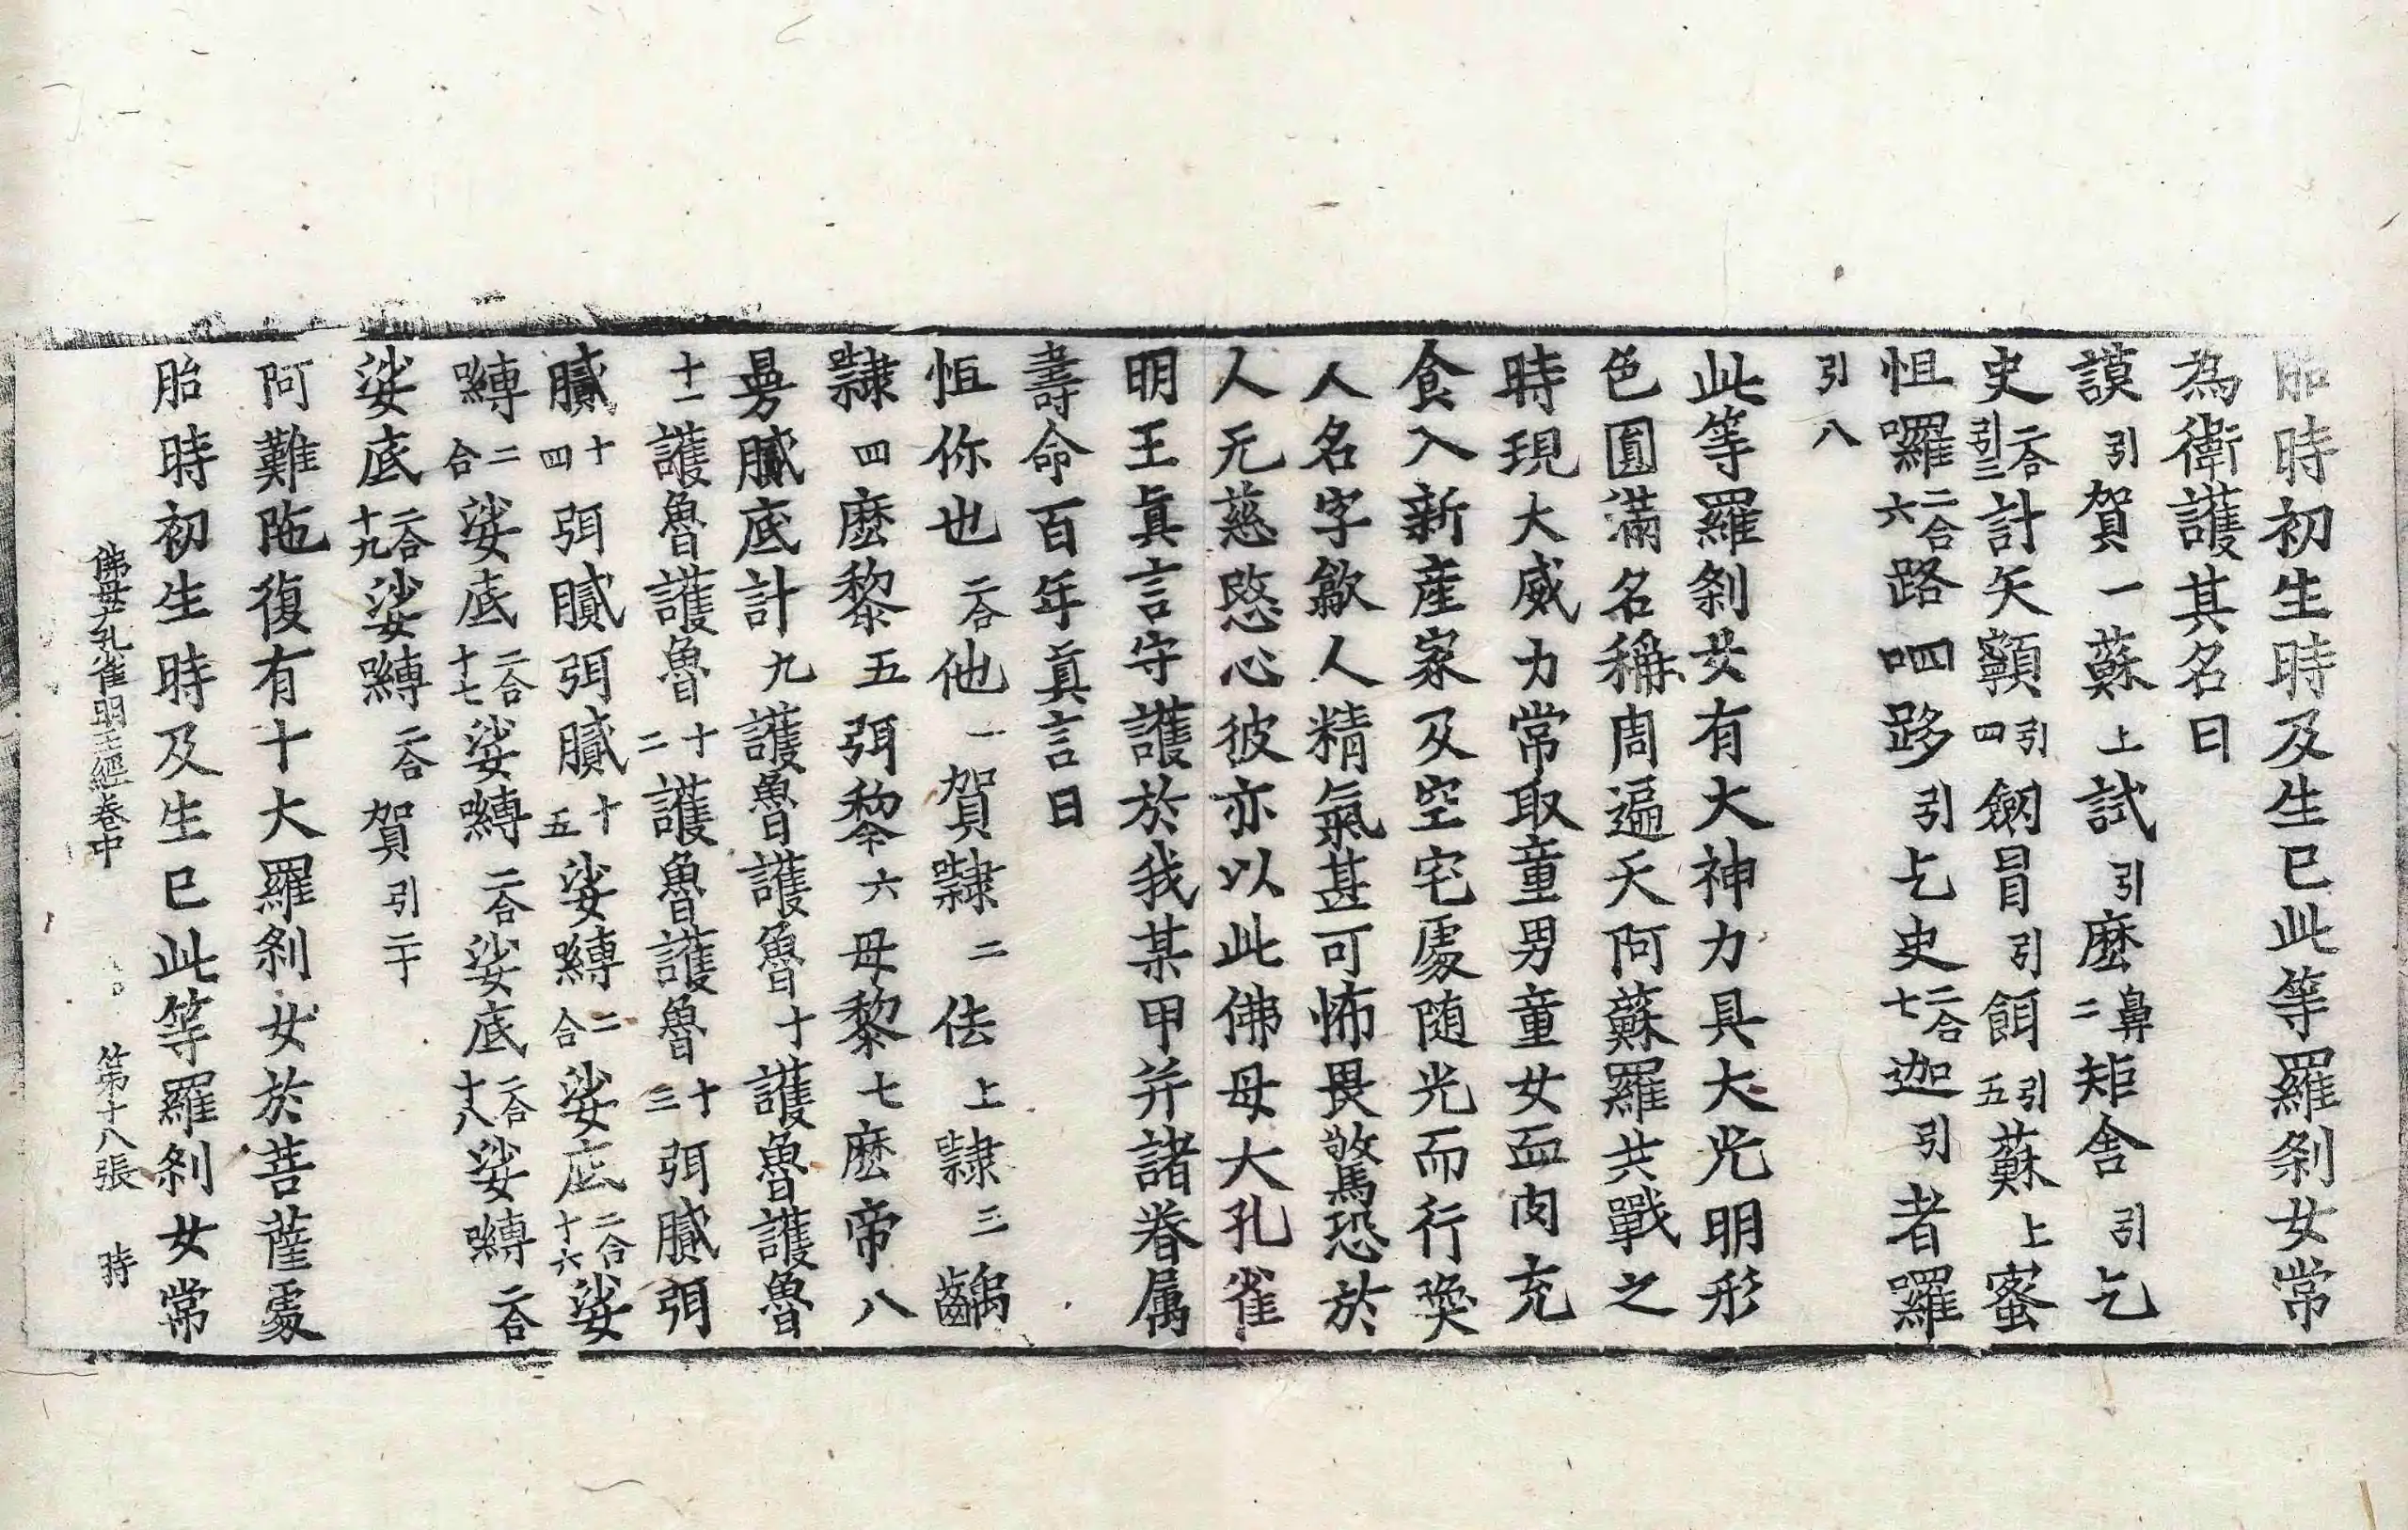 胎時初生時及生已此等羅剎女常
為衛護其名曰
謨引賀一蘇上試引麼鼻二矩舍引乞
史二合引三計矢顙引四劒冒引餌引五蘇上蜜
怚囉二合六路呬跢引乞史二合七迦引者囉
引八
此等羅剎女有大神力具大光明形
色圓滿名稱周遍天阿蘇羅共戰之
時現大威力常取童男童女血肉充
食入新產家及空宅處隨光而行喚
人名字歙人精氣甚可怖畏驚恐於
人无慈愍心彼亦以此佛母大孔雀
明王真言守護於我某甲并諸眷属
壽命百年真言曰
怛你也二合他一賀隸二佉上隸三齲
隸四麼黎五弭黎六母黎七麼帝八
曼膩底計九護魯護魯十護魯護魯
十一護魯護魯十二護魯護魯十三弭膩弭
膩十四弭膩弭膩十五娑嚩二合娑底二合十六娑
嚩二合娑底二合十七娑嚩二合娑底二合十八娑嚩二合
娑底二合十九娑嚩二合賀引二十
阿難陁復有十大羅剎女於菩薩處
胎時初生時及生已此等羅剎女常
佛母大孔雀明王經卷中 第十八張 時